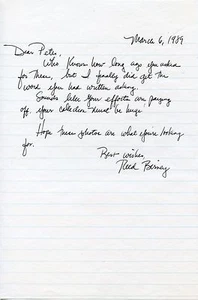 March 6, 1989
Dear Peter,
Who knows how long ago you asked
for them, but I finally did get the
word you had written asking.
Sounds like your efforts are paying
off, your collection must be huge!
Hope these photos are what you're looking
for.
Best wishes,
Reed Birney